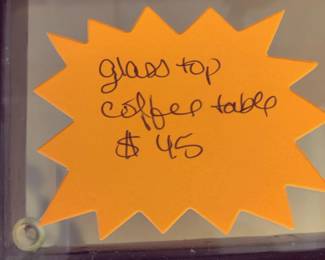 glass top
coffee table
$ 45